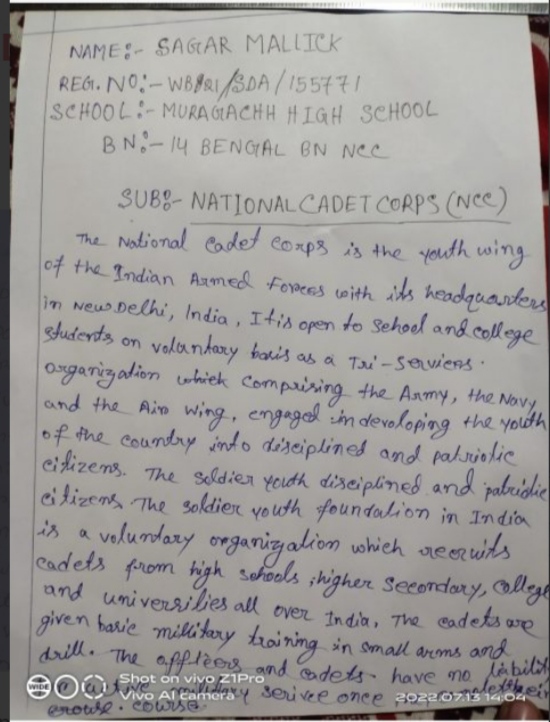 NAME:- SAGAR MALLICK
REG. NO:- WB/SDA/155771
SCHOOL:- MURAGACHH HIGH SCHOOL
BN:- 14 BENGAL BN NCC
SUB:- NATIONAL CADET CORPS (NCC)
The National Cadet Corps is the youth wing
of the Indian Armed Forces with its headquarters
in New Delhi, India, It is open to School and college
students on voluntary basis as a Tri-Serviens.
organization which Comprising the Army, the Navy
and the Air Wing, engaged in developing the youth
of the country into disciplined and patriotic
citizens. The Soldier youth disciplined and patriotic
citizens, The soldier youth foundation in India
is a voluntary organization which recruits
cadets from high schools, higher Secondary, College
and universities all over India, The cadets are
given basic military training in small arms and
drill. The officers and cadets have no liabilit
military serivce once
course.
WIDE
Shot on vivo Z1Pro
Vivo AI camera
2022.07.13 14:04